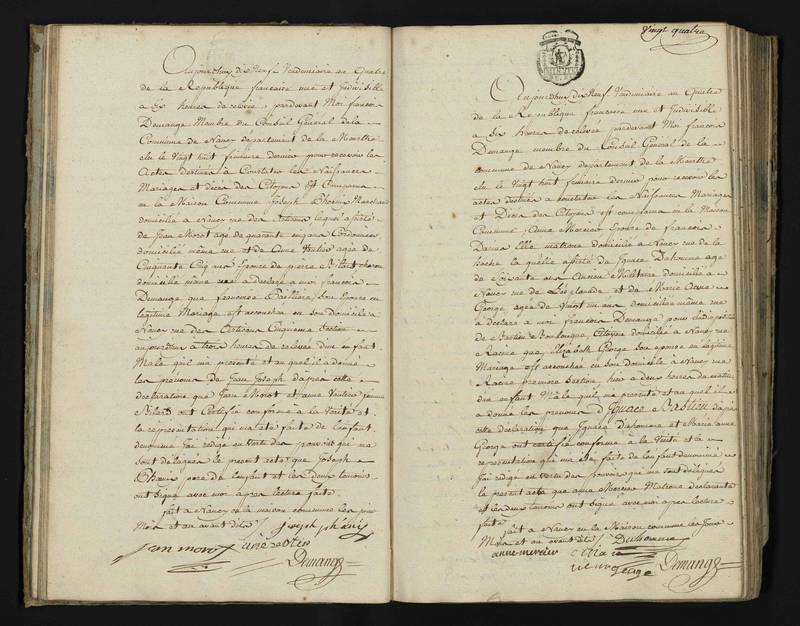 Aujourdhuy dix Neuf Vendemiaire an Quatre
de la Republique francaise une et Indivisible
a six heures de relevée pardevant Moi francois
Demange Membre du Conseil Général de la
Commune de Nancy département de la Meurthe
elu le Vingt huit frimaire dernier pour recevoir les
Actes destinés a Constater les Naissances
Mariages et décès des Citoyens Est Comparu
en la Maison Commune Joseph Marchand
domicilié a Nancy rue des lequel assisté
de Jean Morot agé de quarante ans Cordonnier
domicilié même rue et de agée de
Cinquante Cinq ans Epouse de pierre
domicilié même rue a déclaré a moi francois
Demange que francoise son Epouse en
legitime Mariage est accouchée en son domicile a
Nancy rue des Cinquieme Section
aujourdhuy a trois heures de relevée d'un enfant
Male qu'il m'a presenté et auquel il a donné
les prenoms de Jean Joseph d'après cette
declaration que Jean Morot et
ont Certifié conforme a la Verité et
la representation qui m'a été faite de l'enfant
denommé j'ai redigé en Vertu des pouvoirs qui me
sont délégués le present acte que Joseph
pere de l'enfant et les deux temoins
ont signé avec moi apres lecture faite
fait a Nancy en la maison commune les jour
Mois et an avant dits
Jean morot
Demange
Vingt quatre
Aujourdhuy dix Neuf Vendemiaire an Quatre
de la Republique francaise une et Indivisible
a six heures de relevée pardevant Moi francois
Demange membre du Conseil Général de la
commune de Nancy departement de la Meurthe
elu le Vingt huit frimaire dernier pour recevoir les
actes destinés a constater les Naissances Mariages
et Décès des Citoyens est comparue en la Maison
Commune Anne Mercier Epouse de francois
matrone domiciliée a Nancy rue de la
hache la quelle assistée de Ignace Dahomme agé
de Soixante ans Ancien Militaire domicilié a
Nancy rue de et de Marie Anne
George agée de Vingt ans domiciliée même rue
a déclaré a moi francois Demange pour
de Bastien citoyen domicilié a Nancy rue
Racine que Elizabeth George son epouse en legitime
Mariage est accouchée en son domicile a Nancy rue
Racine premiere Section, hier a deux heures du matin
d'un enfant Mâle qu'il me presente et auquel il
a donné les prenoms d'Ignace Bastien d'après
cette declaration que Ignace Dahomme et Marie anne
George ont certifié conforme a la Verité et la
representation qui m'a été faite de l'enfant denommé
j'ai redigé en Vertu des pouvoirs qui me sont délégués
le present acte que anne Mercier Matrone declarante
et les deux temoins ont signé avec moi apres lecture
faite
fait a Nancy en la Maison commune les jour
Mois et an avant dits
anne mercier
george
Demange